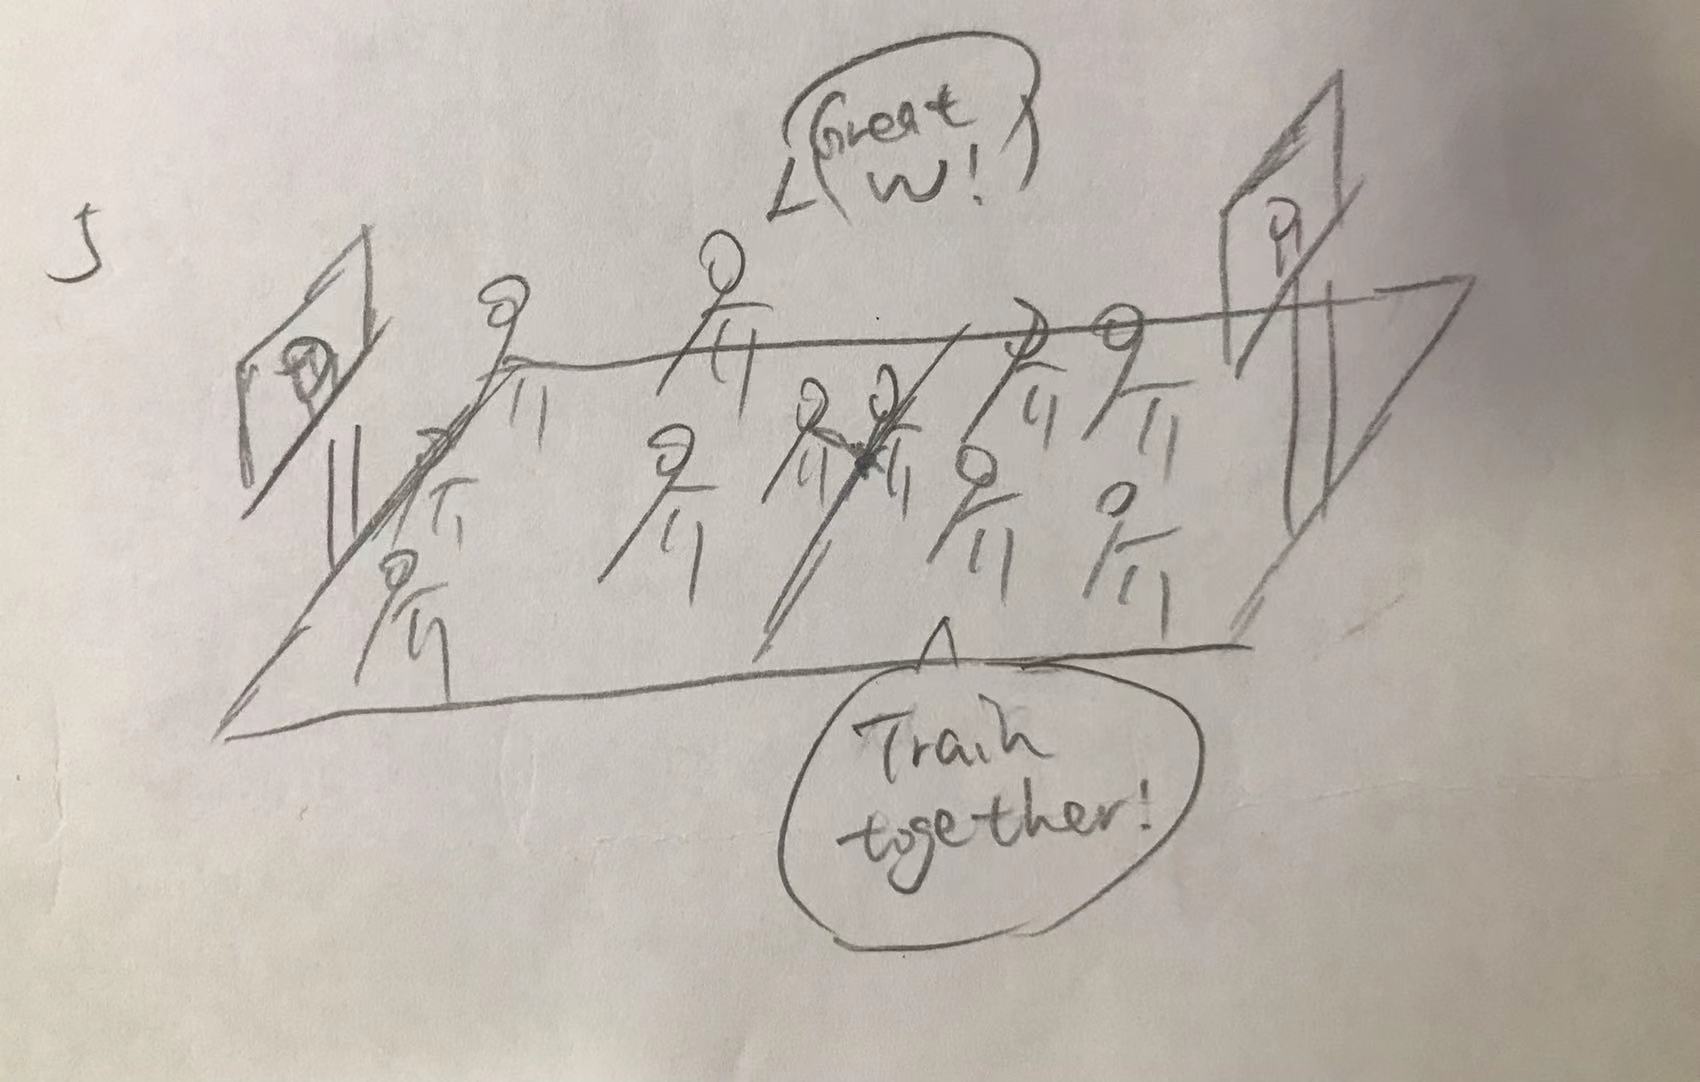 5
Great
W!
Train
together!